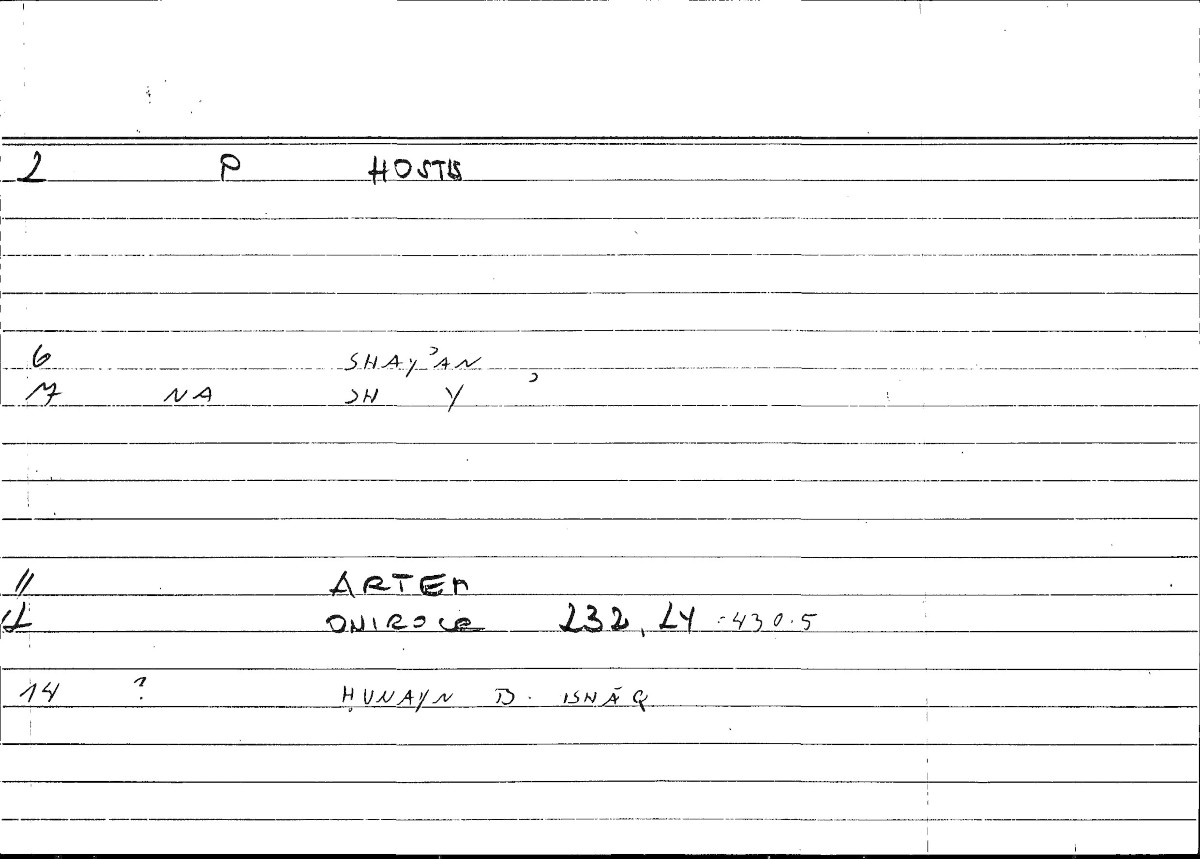 2 P HOSTIS
6 SHAY'AN
7 NA SH Y '
11 ARTEM
ONIROCR 232, 24 : 430.5
14 ? ḤUNAYN B. ISHĀQ